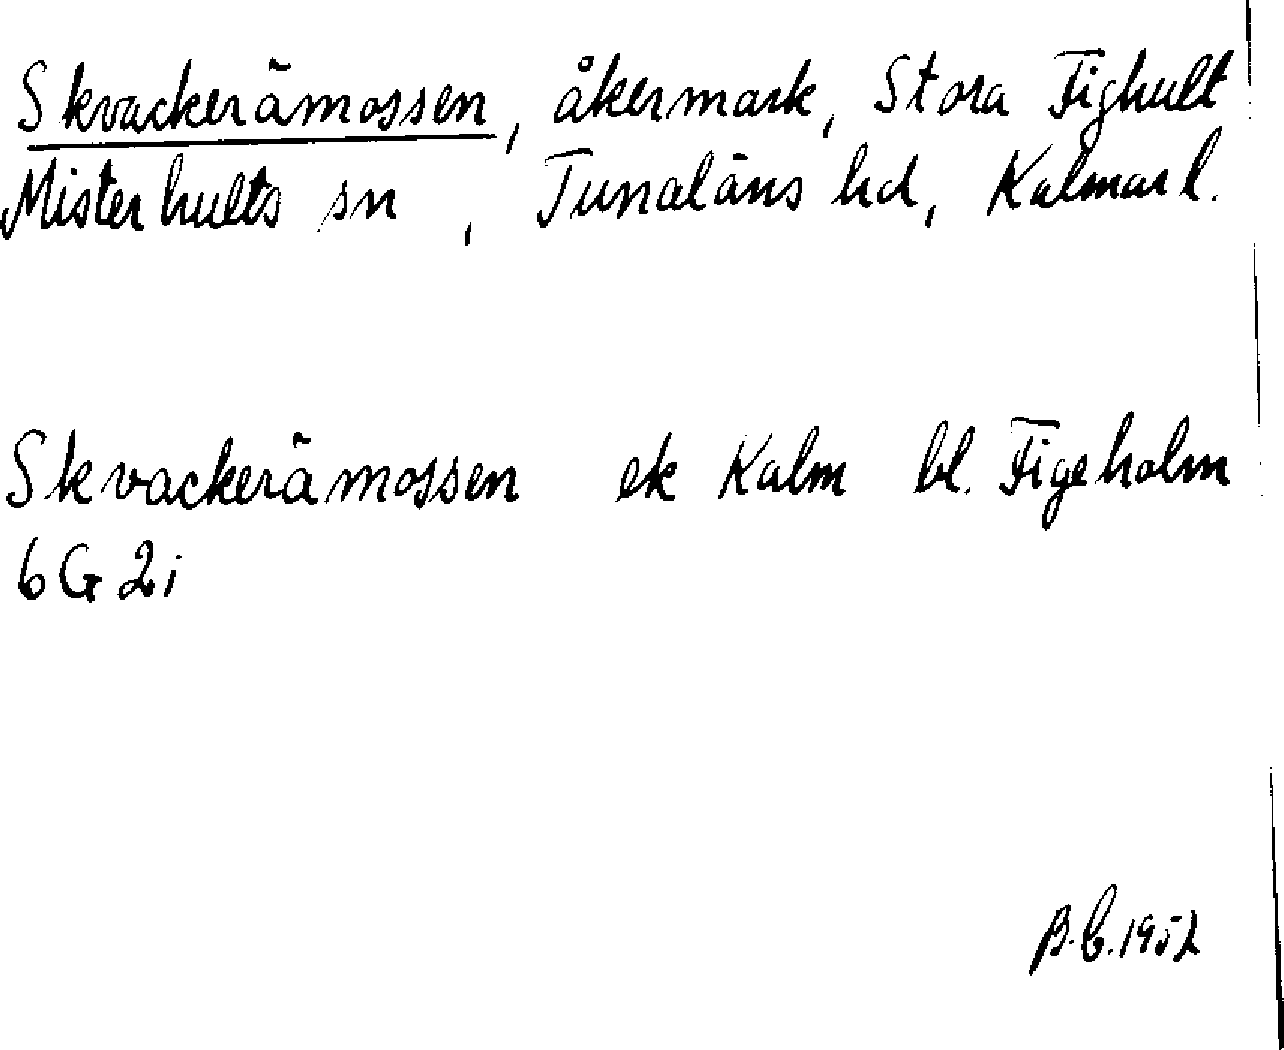 Skvackerämossen, åkermark, Stora Fighult
Misterhults sn, Tunaläns hd, Kalmar l.
Skvackerämossen ek Kalm bl. Figeholm
6G2i
B.C. 1952